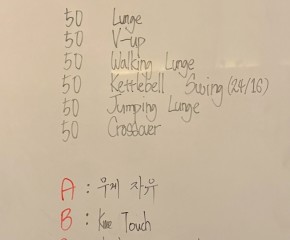 50 Lunge
50 V-up
50 Walking Lunge
50 Kettlebell Swing (24/16)
50 Jumping Lunge
50 Crossover
A : 우게 자유
B : Knee Touch